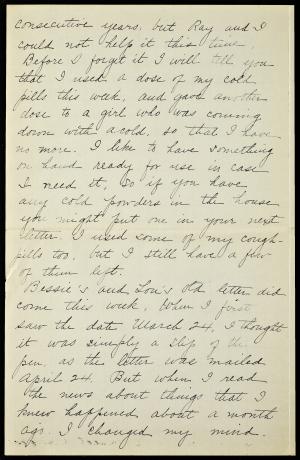 consecutive years, but Ray and I
could not help it this time.
Before I forget it I will tell you
that I used a dose of my cold
pills this week, and gave another
dose to a girl who was coming
down with a cold, so that I have
no more. I like to have something
on hand ready for use in case
I need it, so if you have
any cold powders in the house
you might put one in your next
letter. I used some of my cough-
pills too, but I still have a few
of them left.
Bessie's and Lou's old letter did
come this week. When I first
saw the date March 24, I thought
it was simply a slip of the
pen, as the letter was mailed
April 24. But when I read
the news about things that I
knew happened about a month
ago, I changed my mind.